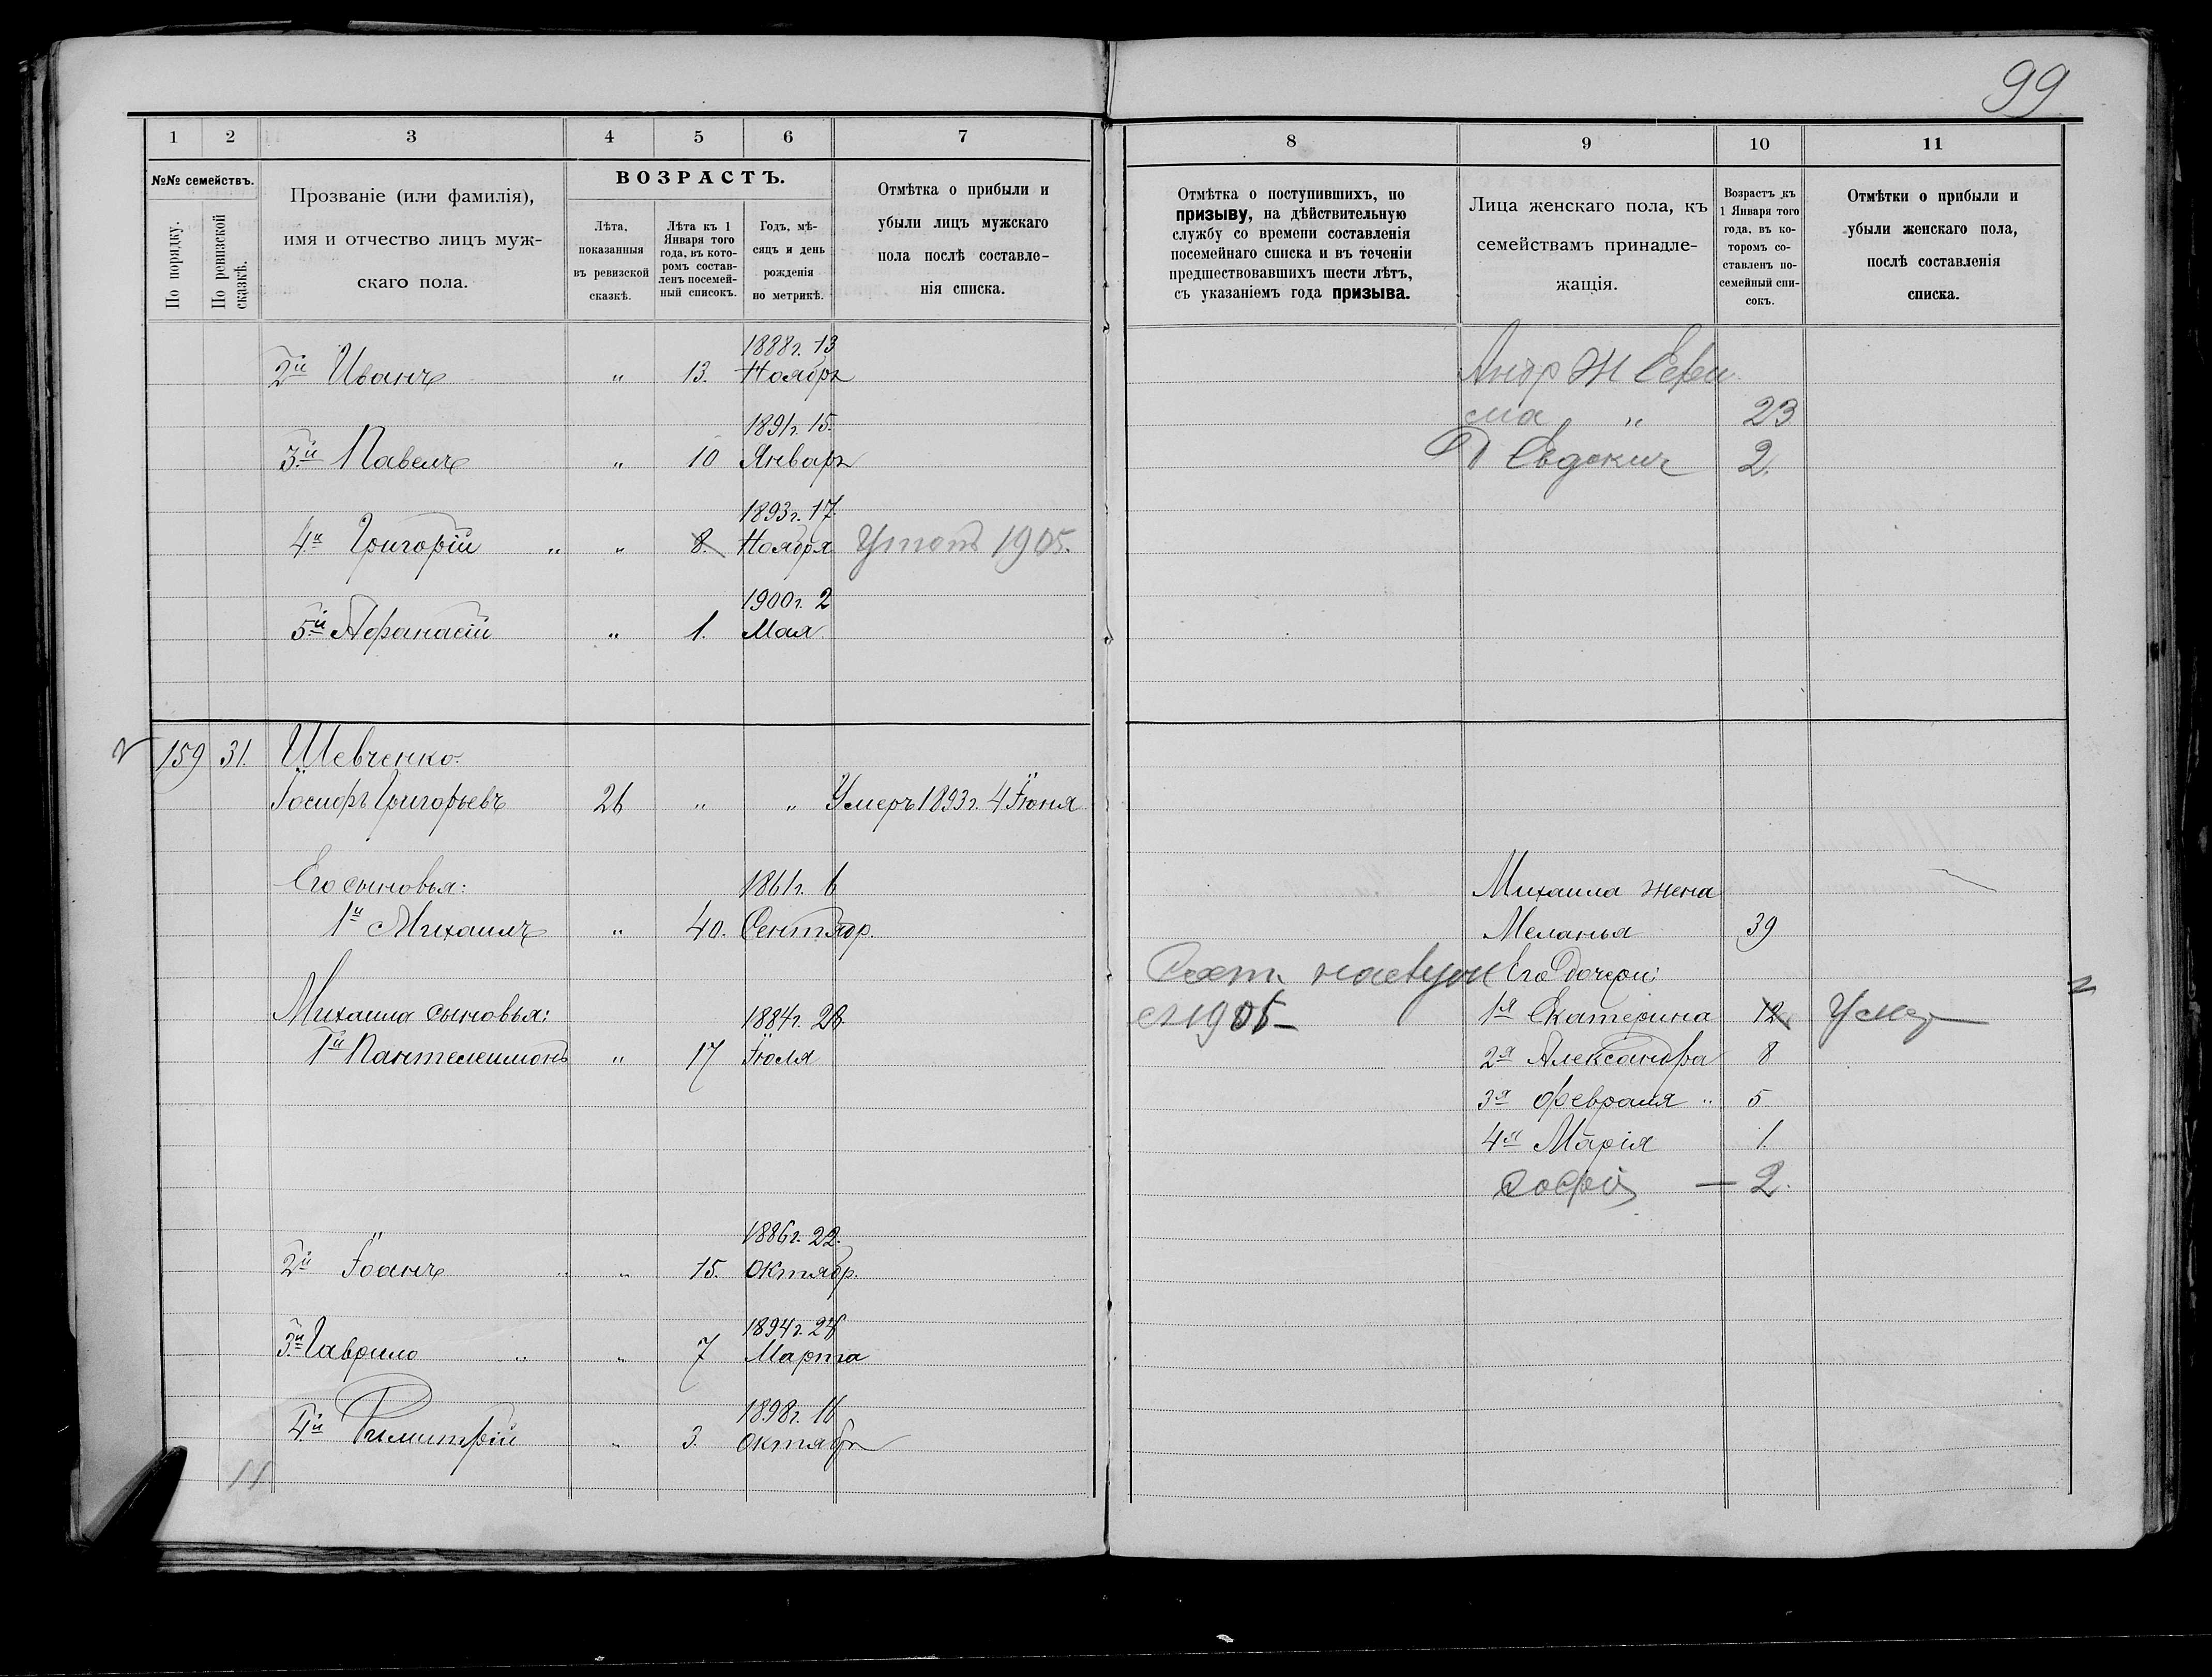 99
1 2 3 4 5 6 7
№№ семействъ.
По порядку.
По ревизской сказкѣ.
Прозваніе (или фамилія),
имя и отчество лицъ муж-
скаго пола.
ВОЗРАСТЪ.
Лѣта,
показанныя
въ ревизской
сказкѣ.
Лѣта къ 1
Января того
года, въ кото-
ромъ состав-
ленъ посемей-
ный списокъ.
Годъ, мѣ-
сяцъ и день
рожденія
по метрикѣ.
Отмѣтка о прибыли и
убыли лицъ мужскаго
пола послѣ составле-
нія списка.
1888г. 13
2й Иванъ " 13. Ноября
1891г. 15.
3й Павелъ " 10 Января
1893г. 17.
4й Григорій " " 8. Ноября Утопъ 1905.
1900г. 2
5й Афанасій " 1. Мая.
159 31. Шевченко.
Іосифъ Григорьевъ 26 " " Умеръ 1893г. 4 Іюня
Его сыновья: 1861г. 6
1й Михаилъ " 40. Сентябр.
Михаила сыновья: 1884г. 28.
1й Пантелеимонъ " 17 Іюля
1886г. 22.
2й Іоанъ " " 15. Октябр.
1894г. 24
3й Гаврило " " 7 Марта
1898г. 16
4й Димитрій " 3. Октября
11
8 9 10 11
Отмѣтка о поступившихъ, по
призыву, на дѣйствительную
службу со времени составленія
посемейнаго списка и въ теченіи
предшествовавшихъ шести лѣтъ,
съ указаніемъ года призыва.
Лица женскаго пола, къ
семействамъ принадле-
жащія.
Возрастъ къ
1 Января того
года, въ ко-
торомъ со-
ставленъ по-
семейный спи-
сокъ.
Отмѣтки о прибыли и
убыли женскаго пола,
послѣ составленія
списка.
Андр Ж Ефи
мія " 23
Д Евдокия 2.
Михаила жена
Меланья 39
Его дочери:
1905 1я Екатерина 12 Умер
2я Александра 8
3я Февралія " 5.
4я Марія 1.
Софія — 2.